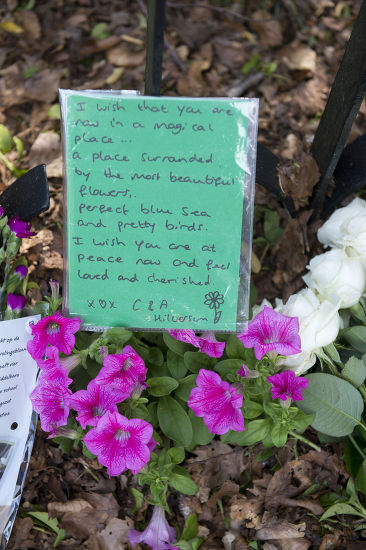 I wish that you are
now in a magical
place...
a place surranded
by the most beautiful
flowers,
perfect blue sea
and pretty birds.
I wish you are at
peace now and feel
loved and cherished
x♡x C & A
Hilversum